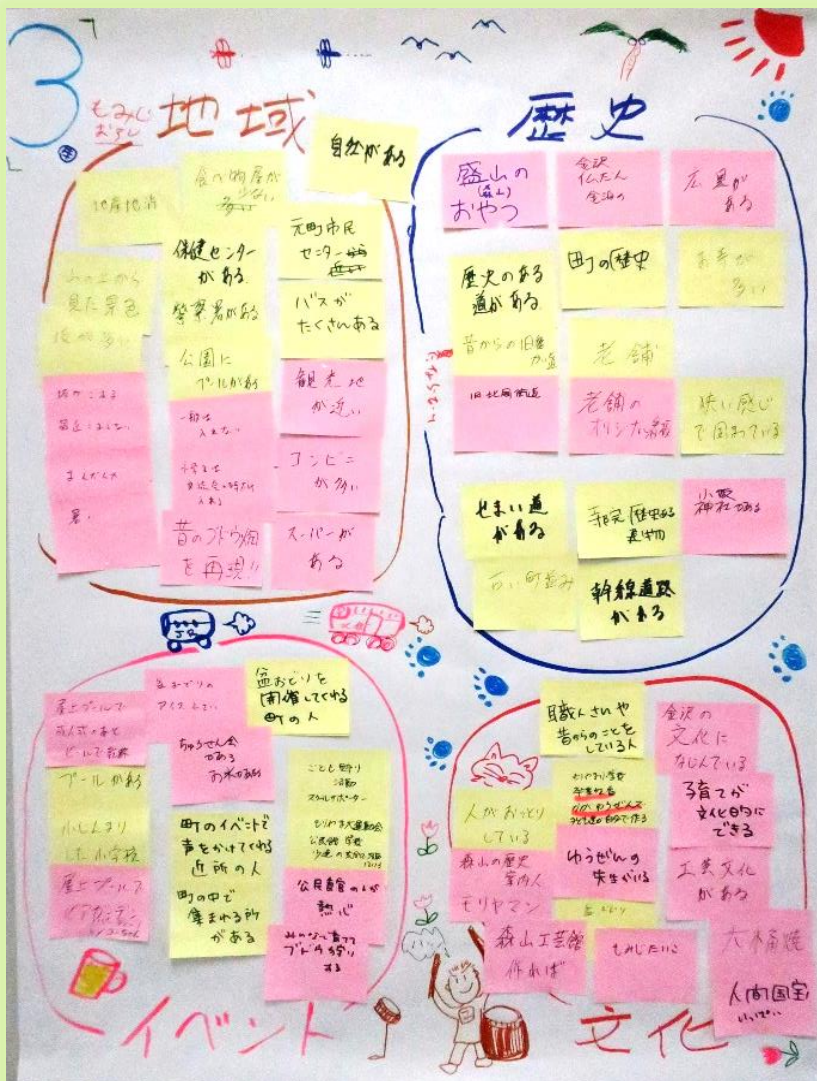 3
もみじ
おろし
地域
自然がある
食べ物屋が
少ない
地産地消
保健センター
がある
元町市民
センター
山の上から
見た景色
警察署がある
バスが
たくさんある
公園に
プールがある
観光地
が近い
一般は
入れない
コンビニ
が多い
まんぷく
暑い
昔のブドウ畑
を再現!!
スーパーが
ある
歴史
盛山の
(森山)
おやつ
金沢
仏だん
金箔の
広見が
ある
歴史のある
道がある
町の歴史
お寺が
多い
昔からの旧道
老舗
旧北国街道
老舗の
狭い感じ
で困っている
せまい道
がある
寺院 歴史ある
建物
小坂
神社である
古い町並み
幹線道路
がある
JR
イベント
屋上プールで
成人式のあと
ビールで乾杯
盆おどりの
アイス
盆おどりを
開催してくれる
町の人
ちゅうせん会
がある
お米がある
プールがある
こども見守り
活動
スクールサポーター
小じんまり
した小学校
町のイベントで
声をかけてくれる
近所の人
公民館 学校
屋上プールで
ビアガーデン
町の中で
集まれる所
がある
公民館の人が
熱心
みんなで育てて
ブドウ狩り
する
文化
職人さんや
昔からのことを
している人
金沢の
文化に
なじんでいる
人がおっとり
している
子育てが
文化的に
できる
森山の歴史
案内人
モリヤマン
ゆうぜんの
先生がいる
工芸文化
がある
森山工芸館
作れば
もみじたいこ
大樋焼
人間国宝
いっぱい